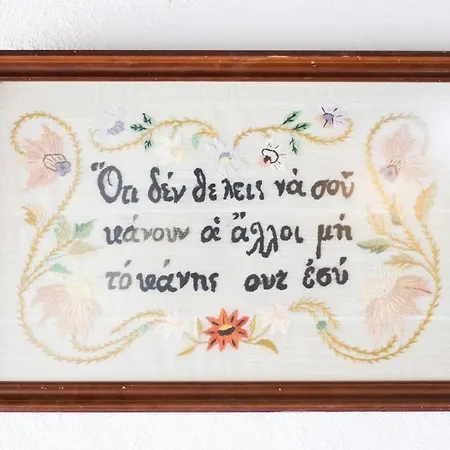 Ὅτι δέν θελεις νά σοῦ
κάνουν οἱ ἄλλοι μή
τό κάνης ουτ ἐσύ